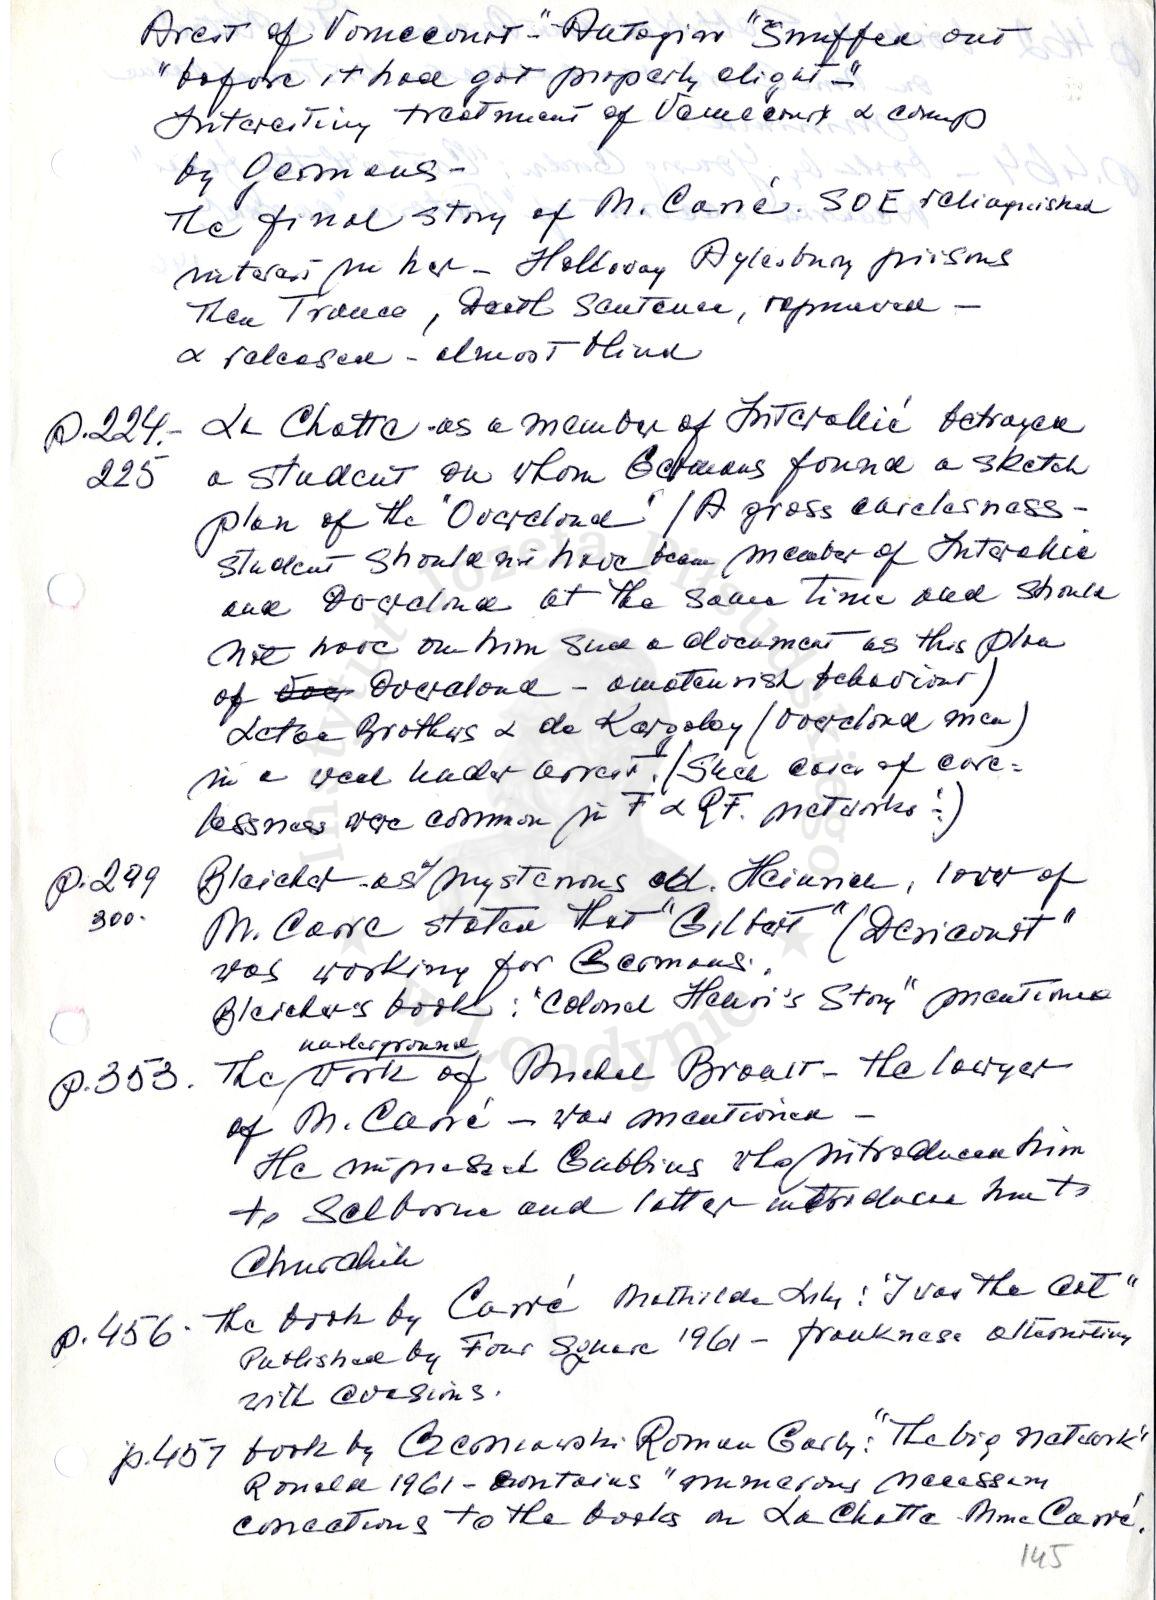 Arest of Vomecourt - "Autogiro "Snuffed out
"before it had got properly alight -"
Interesting treatment of Vomecourt & comp
by Germans -
The final story of M. Carré. SOE relinquished
interest in her - Holloway Aylesbury prisons
then France, Death Sentence, reprieved -
& released - almost blind
p.224.- La Chatte as a member of Interallié betrayed
225 a student on whom Germans found a sketch
plan of the "Overcloud" (A gross carelesness -
student should not have been member of Interallie
and Overcloud at the same time and should
not have on him such a document as this plan
of Overcloud - amateurish behaviour)
Brothers & de Kergolay (Overcloud men)
in a week under arrest. (Such cases of care=
lessness were common in F & RF. networks!)
p.299 Bleicher as mysterious col. Heinrich, lover of
300. M. Carre stated that "Gilbert" (Dericourt"
was working for Germans.
Bleicher's book: "Colonel Henri's Story" mentioned
underground
p.353. The work of Michel Brault - the lawyer
of M. Carré - was mentioned -
He impressed Gubbins who introduced him
to Selborne and latter introduced him to
Churchill
p.456. The book by Carré Mathilde Lily: "I was the Cat"
Published by Four Square 1961 - frankness alternating
with evasions.
p.457 book by Czerniawski Roman Garby: "The big network"
Ronald 1961 - contains "numerous necessary
corrections to the books on La Chatte Mme Carré.
145
Instytut Józefa Piłsudskiego
w Londynie